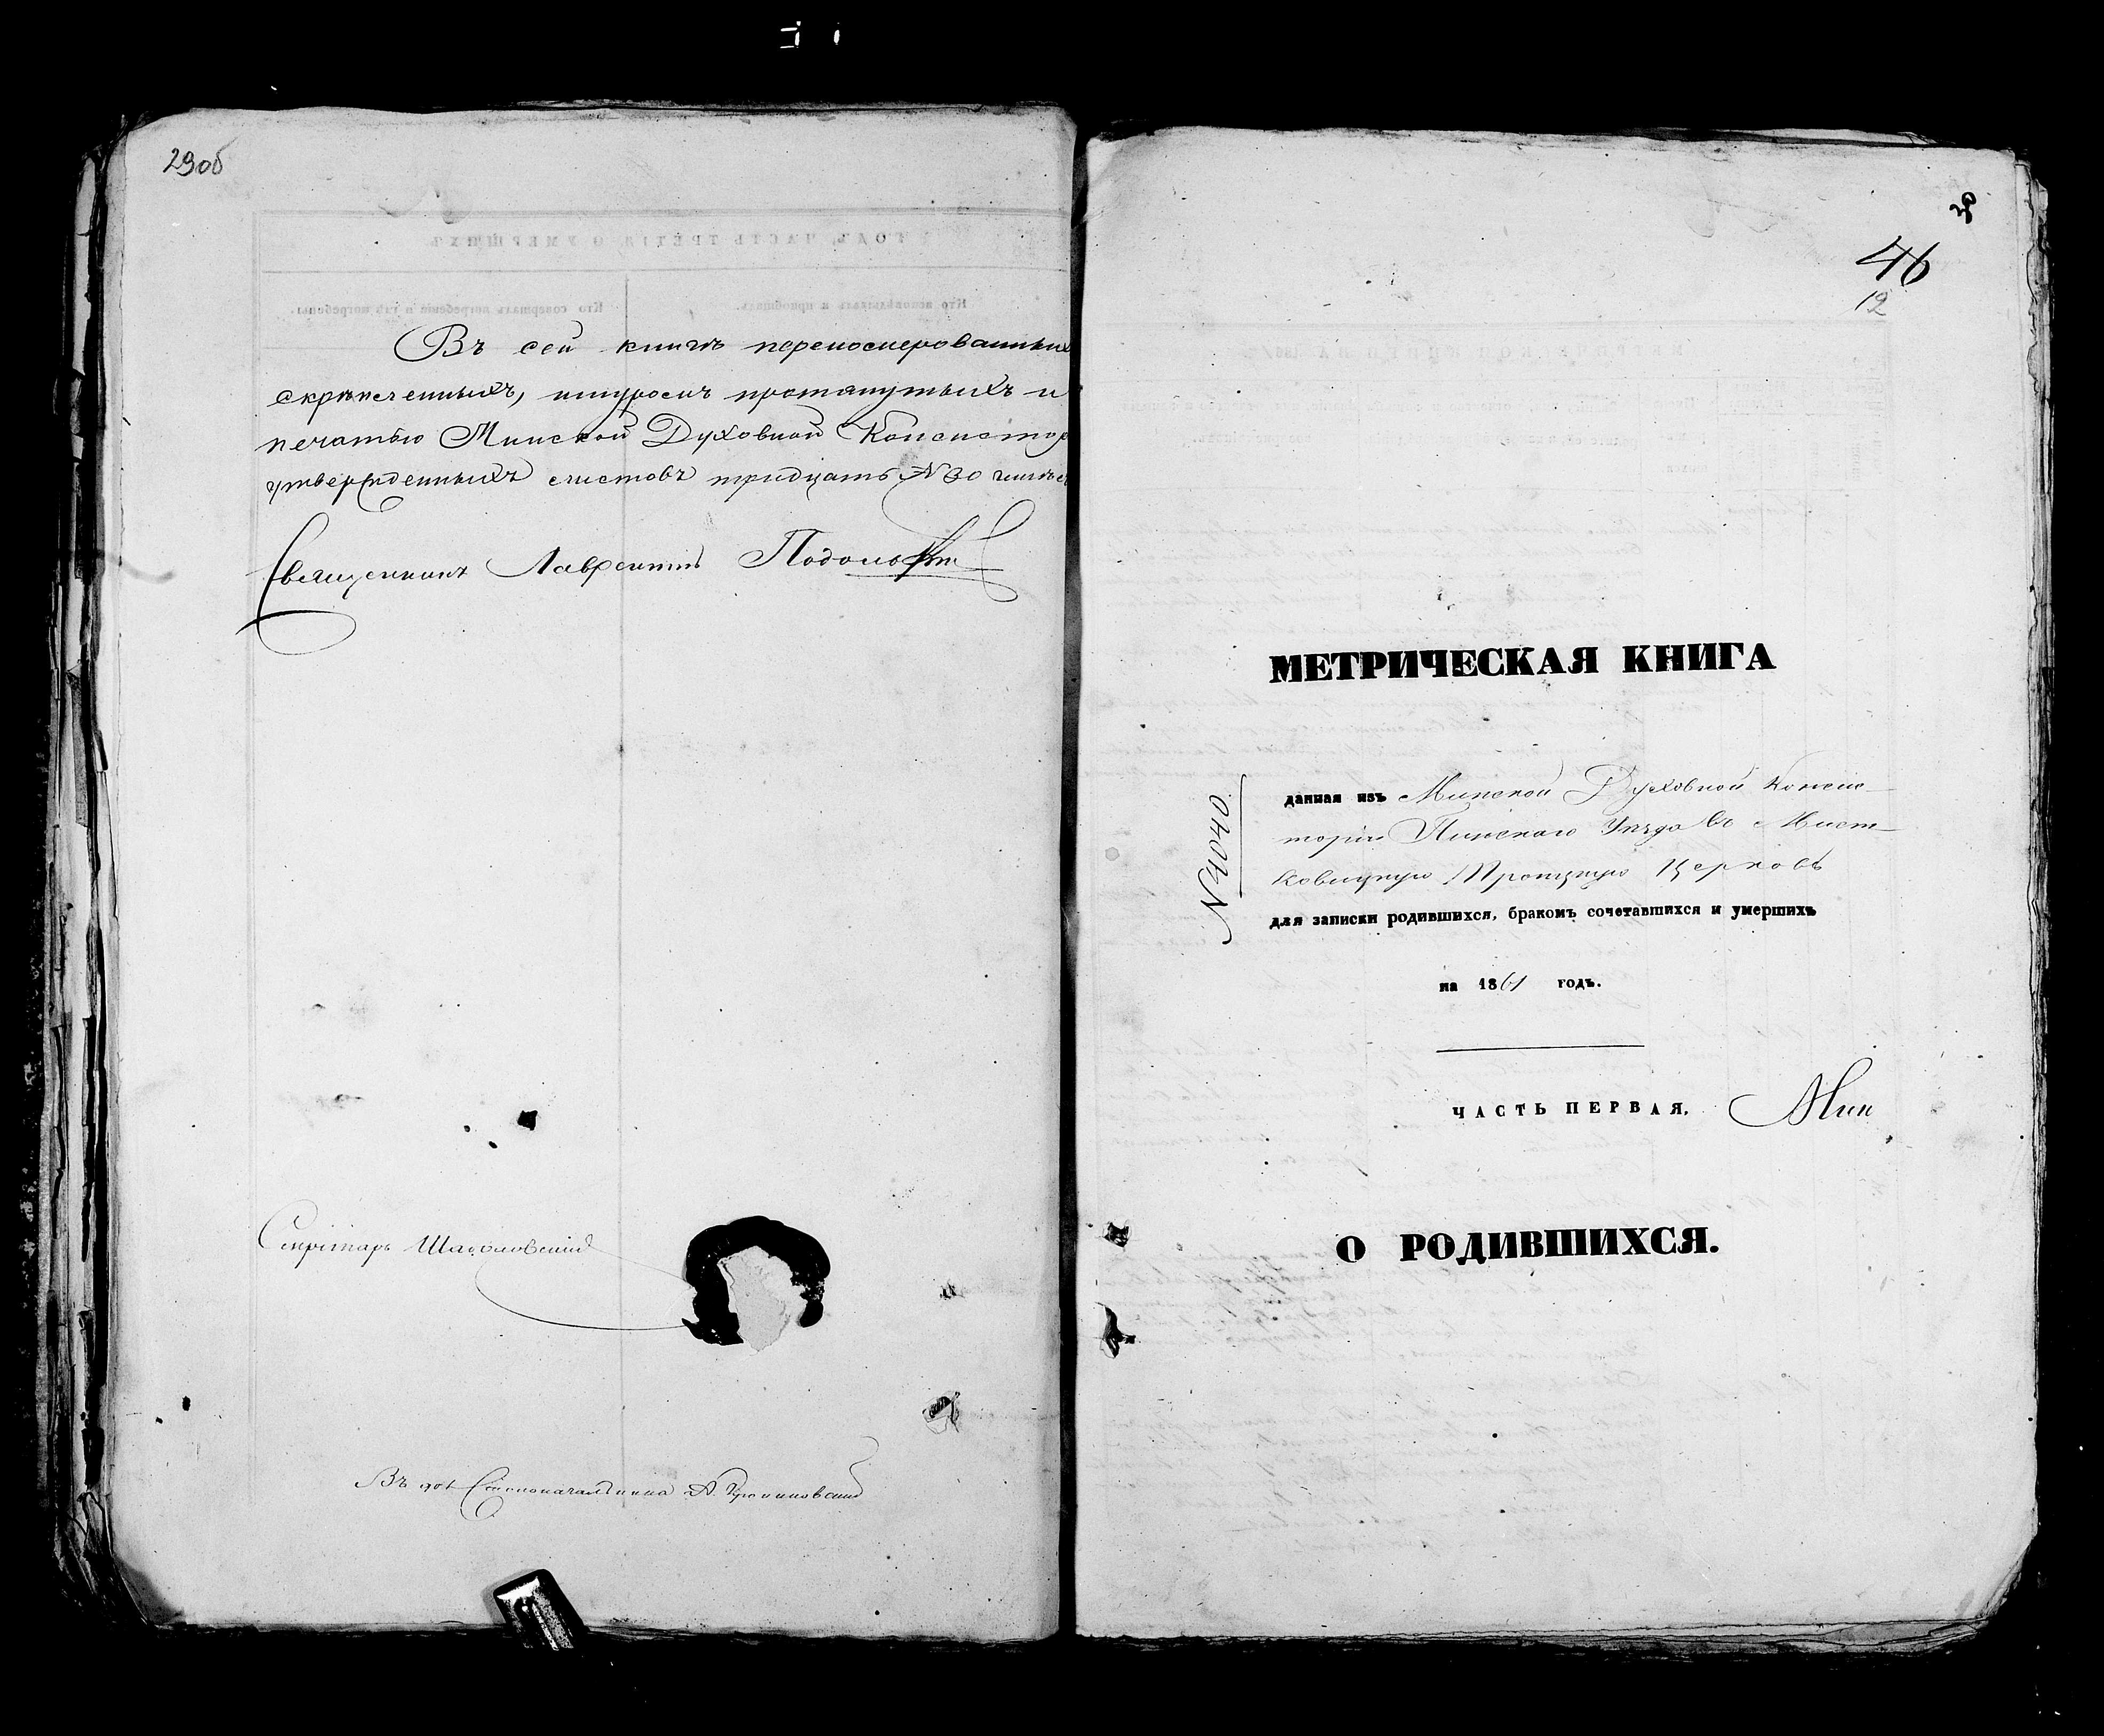 29об
Въ сей книгѣ перенумерованныхъ
скрѣпленныхъ, шнуромъ протянутыхъ и
печатью Минской Духовной Консистор
утвержденныхъ листовъ тридцать N 30
Священникъ Лаврентій
Секретарь
Въ дол Столоначальника А.
30
46
12
МЕТРИЧЕСКАЯ КНИГА
N 4040
данная изъ Минской Духовной Консис-
торіи Пинскаго Уѣзда въ Мист-
ковицкую Троицкую Церковь
для записки родившихся, бракомъ сочетавшихся и умершихъ
на 1861 годъ.
ЧАСТЬ ПЕРВАЯ. Мин
О РОДИВШИХСЯ.